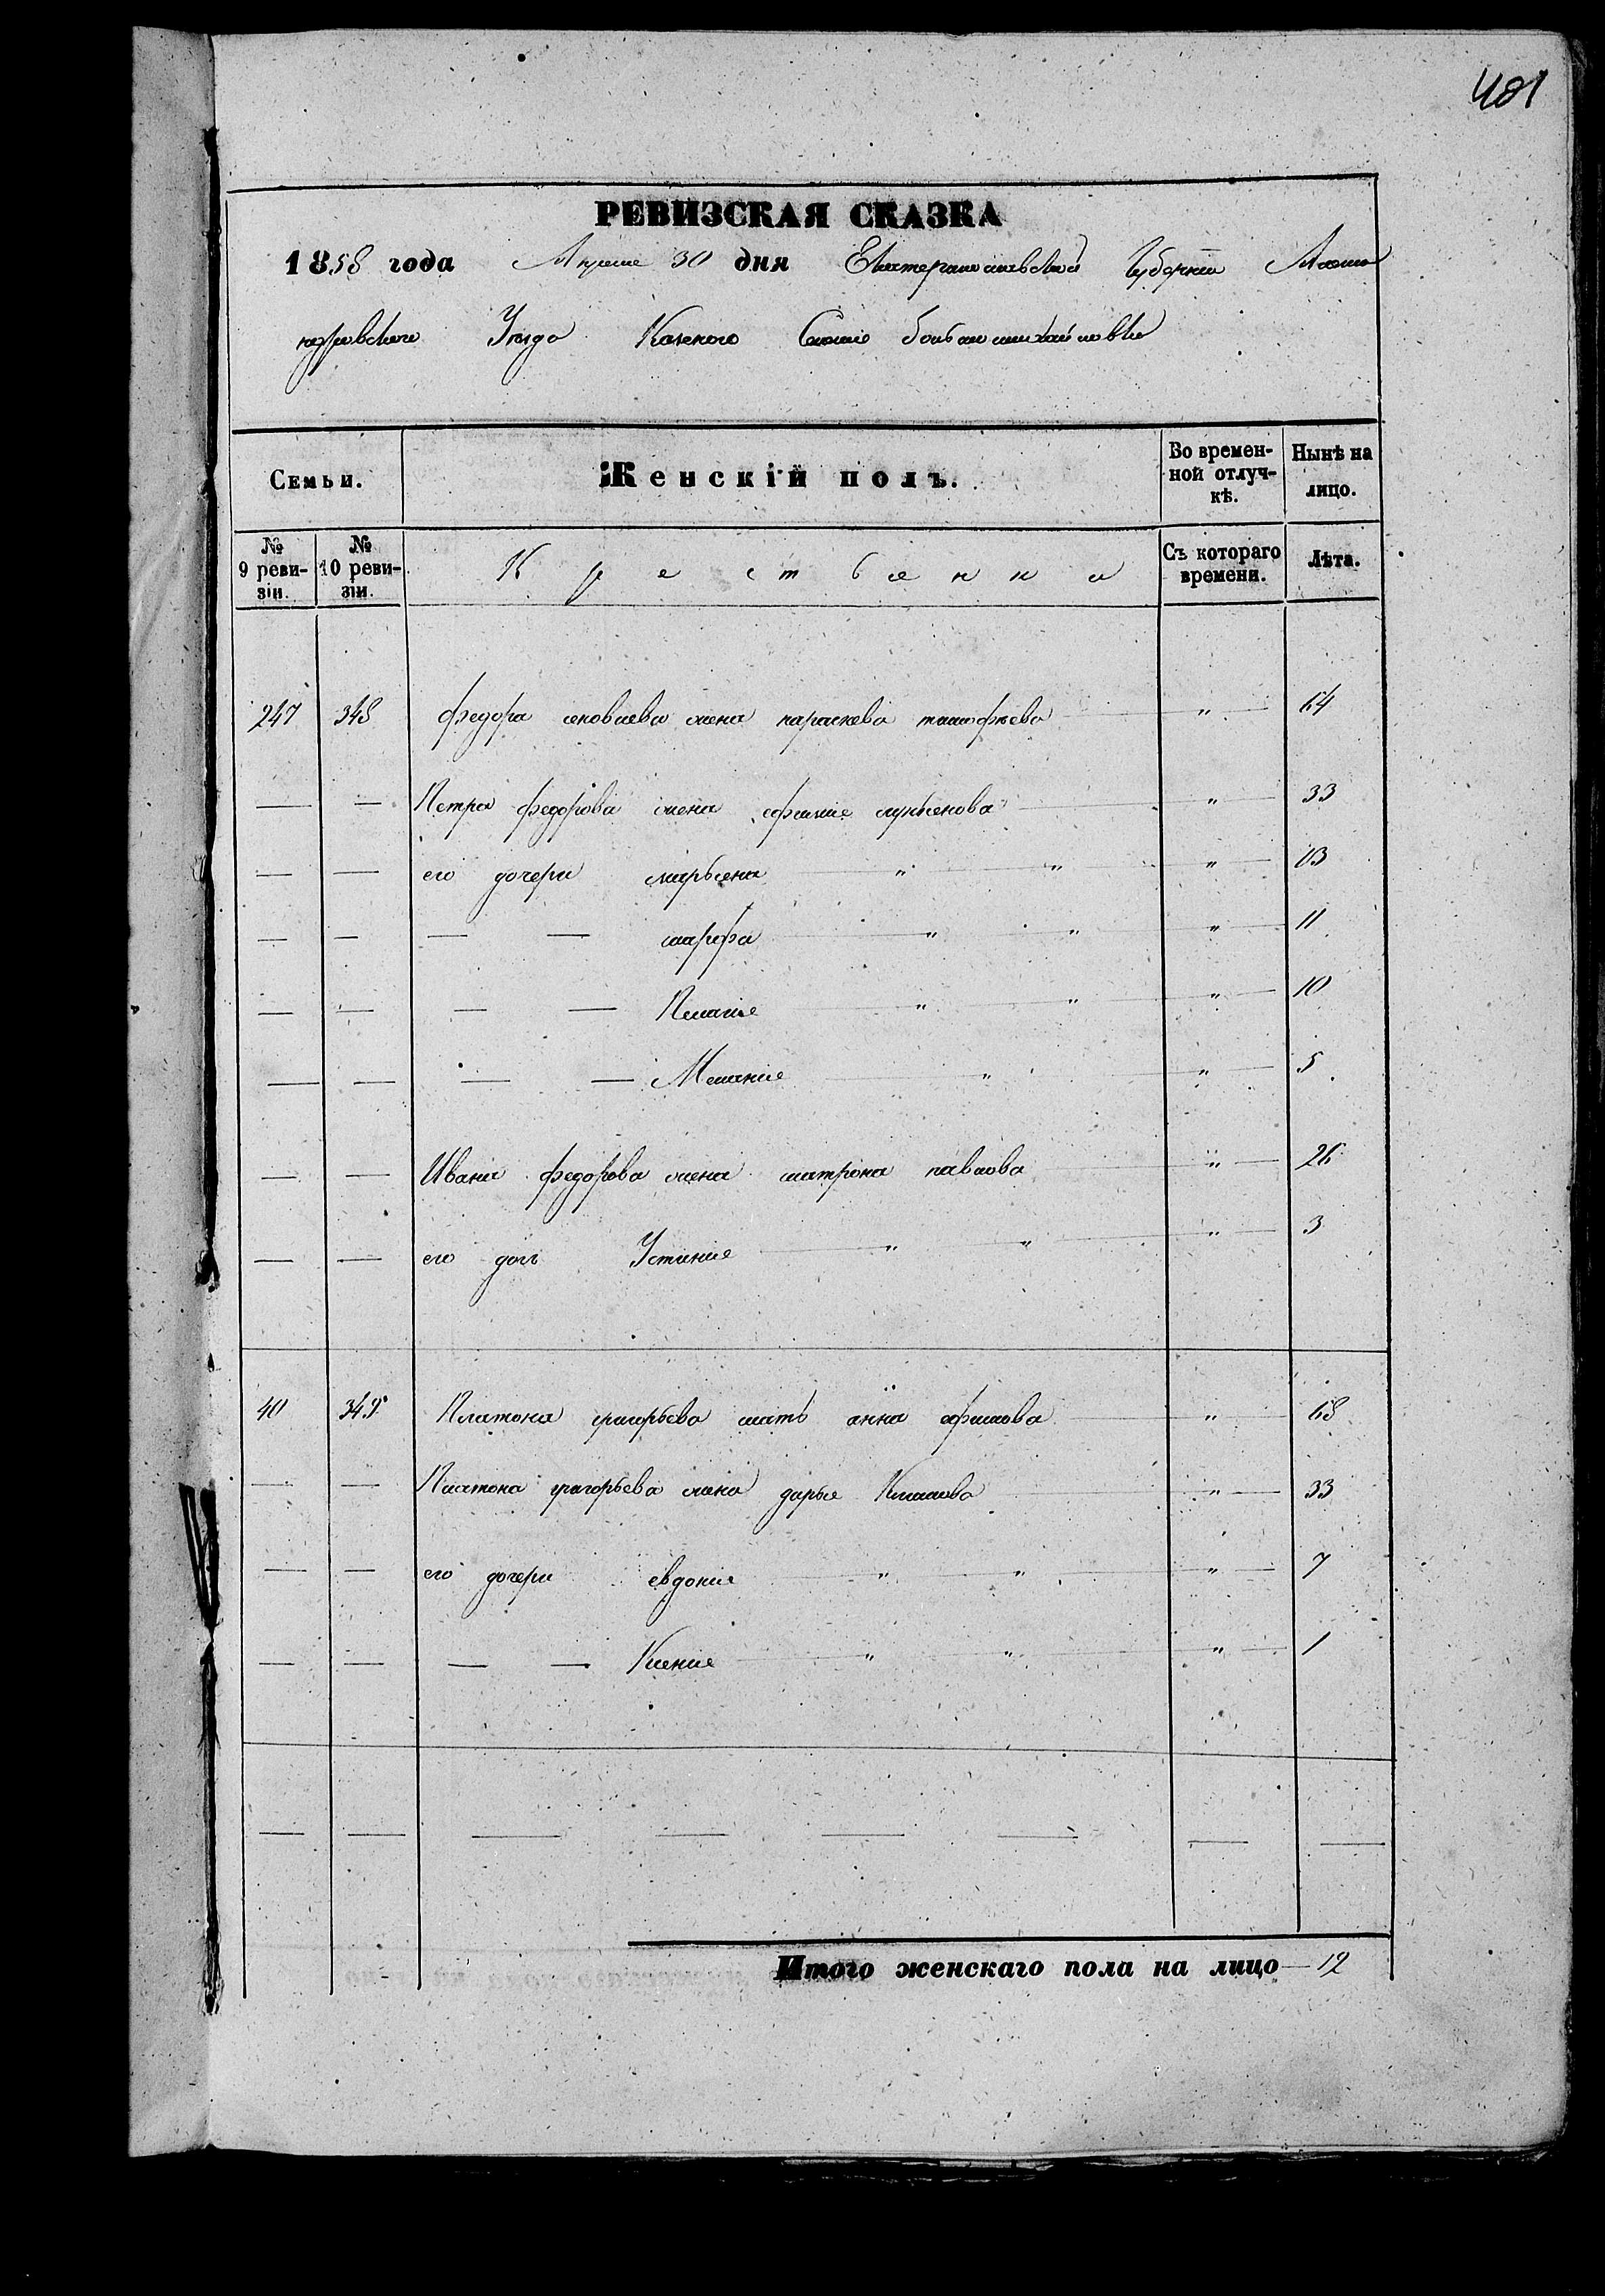 481
РЕВИЗСКАЯ СКАЗКА
1858 года Апреля 30 дня Екатеринославской Губернии Алекса
ндровского Уезда Казенного Селение большемихайловки
Семьи. Женскій полъ. Во времен-ной отлуч-кѣ. Нынѣ на лицо.
№ 9 реви-зіи. № 10 реви-зіи. Крестьянки Съ котораго времени. Лѣта.
247 348 Федора жена параскева тимофеева " 64
— — Петра федорова жена ефимия " 33
— — его дочери марьена " " " 13
— — — — марфа " " " 11
— — — — Пелагие " " " 10
— — — — Мелание " " 5
— — Ивана федорова жена матрона павлова " 26
— — его дочь Устиние " " " 3
40 349 Платона григорьева мать анна ефимова " 68
— — Платона григорьева жена дарья Климова " 33
— — его дочери евдокия " " " 7
— — — — Ксение " " " 1
Итого женскаго пола на лицо — 12